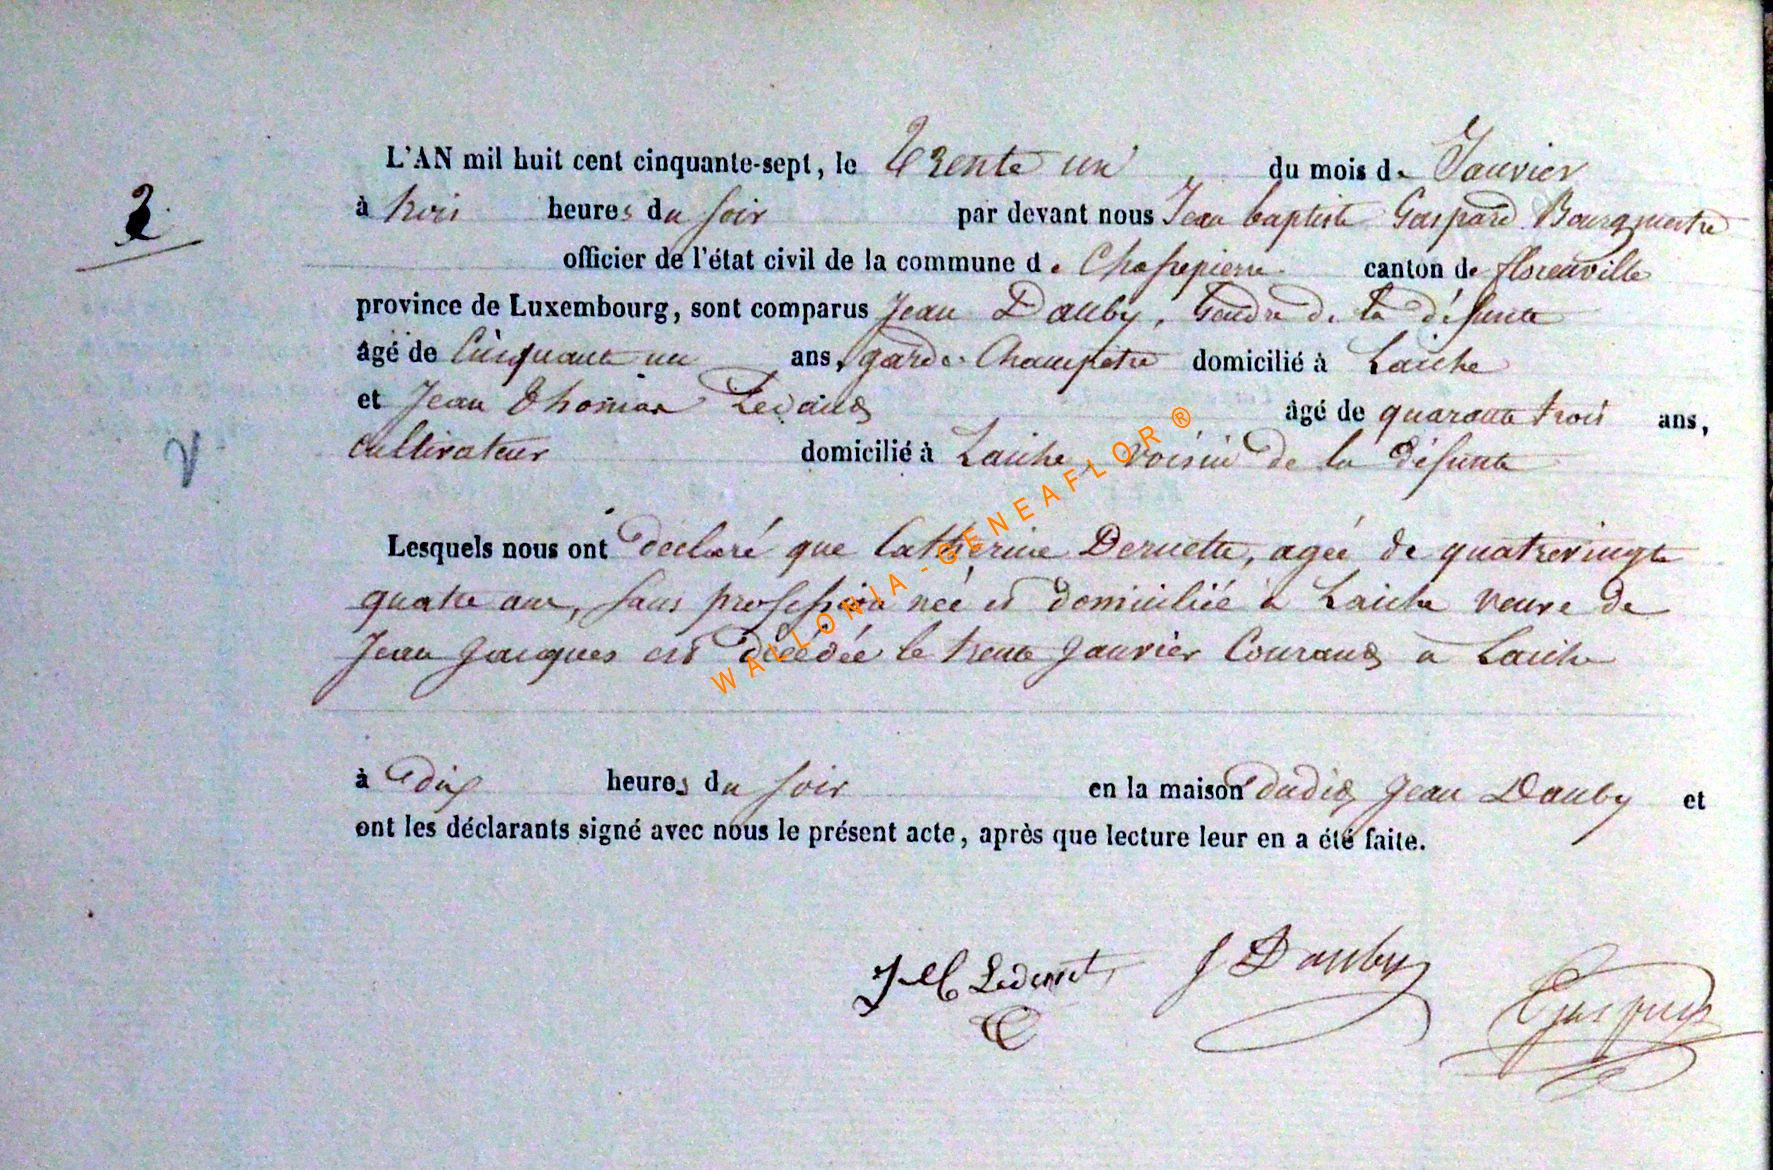 L'AN mil huit cent cinquante-sept, le trente un du mois de Janvier
2
à trois heures du soir par devant nous Jean baptiste Gaspard Bourgmestre
officier de l'état civil de la commune de Chassepierre canton de florenville
province de Luxembourg, sont comparus Jean Dauby, Gendre de la défunte
âgé de Cinquante un ans, garde Champetre domicilié à Laiche
et Jean Thomas âgé de quarante trois ans,
cultivateur domicilié à Laiche, voisin de la défunte
V
Lesquels nous ont déclaré que Catherine Deruette, agée de quatrevingt
quatre ans, sans profession née et domiciliée à Laiche veuve de
Jean Jacques est décédée le trente Janvier Courant a Laiche
à dix heures du soir en la maison dudit Jean Dauby et
ont les déclarants signé avec nous le présent acte, après que lecture leur en a été faite.
J Dauby
Gaspard
WALLONIA - GENEAFLOR ®